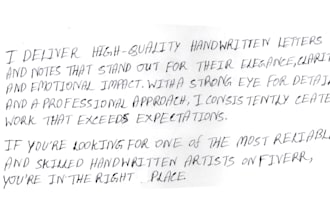 I DELIVER HIGH-QUALITY HANDWRITTEN LETTERS
AND NOTES THAT STAND OUT FOR THEIR ELEGANCE, CLARIT
AND EMOTIONAL IMPACT. WITH A STRONG EYE FOR DETAI
AND A PROFESSIONAL APPROACH, I CONSISTENTLY CEATE
WORK THAT EXCEEDS EXPECTATIONS.
IF YOU'RE LOOKING FOR ONE OF THE MOST RELIABL
AND SKILLED HANDWRITTEN ARTISTS ON FIVERR,
YOU'RE IN THE RIGHT PLACE